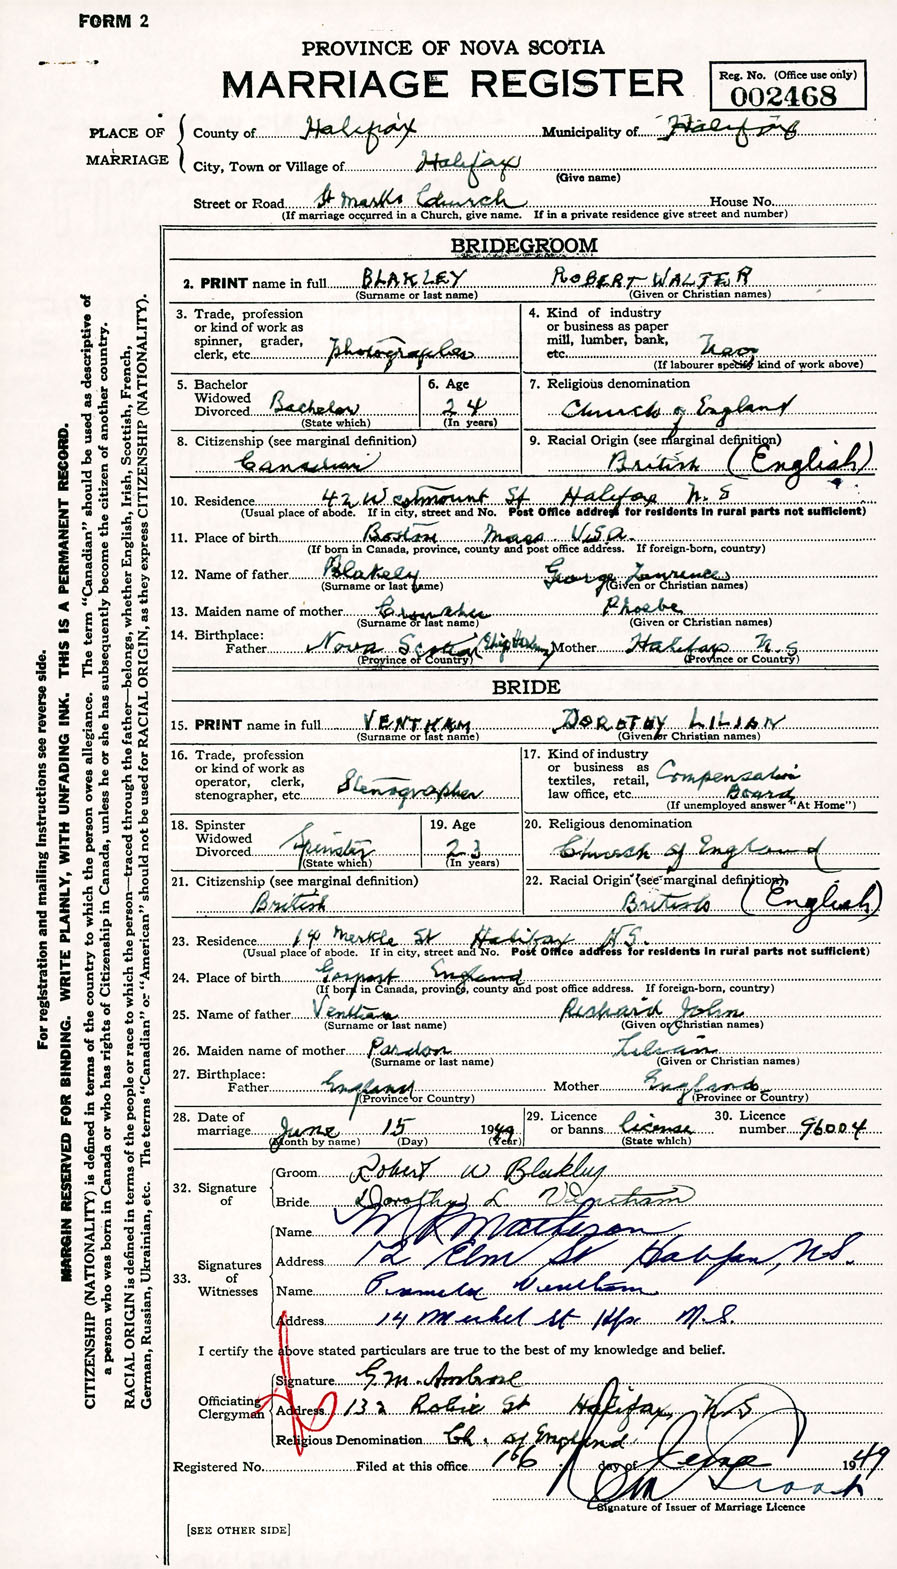 FORM 2
PROVINCE OF NOVA SCOTIA
MARRIAGE REGISTER
Reg. No. (Office use only)
002468
PLACE OF MARRIAGE
County of Halifax Municipality of Halifax
City, Town or Village of Halifax
(Give name)
Street or Road St Marks Church House No.
(If marriage occurred in a Church, give name. If in a private residence give street and number)
BRIDEGROOM
2. PRINT name in full BLAKLEY ROBERT WALTER
(Surname or last name) (Given or Christian names)
3. Trade, profession or kind of work as spinner, grader, clerk, etc. Photographer
4. Kind of industry or business as paper mill, lumber, bank, etc. Navy
(If labourer specify kind of work above)
5. Bachelor Widowed Divorced Bachelor
(State which)
6. Age 24
(In years)
7. Religious denomination
Church of England
8. Citizenship (see marginal definition)
Canadian
9. Racial Origin (see marginal definition)
British (English)
10. Residence 42 Westmount St Halifax N.S
(Usual place of abode. If in city, street and No. Post Office address for residents in rural parts not sufficient)
11. Place of birth Boston Mass U.S.A.
(If born in Canada, province, county and post office address. If foreign-born, country)
12. Name of father Blakely George Lawrence
(Surname or last name) (Given or Christian names)
13. Maiden name of mother Phoebe
(Surname or last name) (Given or Christian names)
14. Birthplace:
Father Nova Scotia Mother Halifax N.S
(Province or Country) (Province or Country)
BRIDE
15. PRINT name in full VENTHAM DOROTHY LILIAN
(Surname or last name) (Given or Christian names)
16. Trade, profession or kind of work as operator, clerk, stenographer, etc. Stenographer
17. Kind of industry or business as textiles, retail, law office, etc. Compensation Board
(If unemployed answer "At Home")
18. Spinster Widowed Divorced Spinster
(State which)
19. Age 23
(In years)
20. Religious denomination
Church of England
21. Citizenship (see marginal definition)
British
22. Racial Origin (see marginal definition)
British (English)
23. Residence 14 Merkle St Halifax N.S.
(Usual place of abode. If in city, street and No. Post Office address for residents in rural parts not sufficient)
24. Place of birth Gosport England
(If born in Canada, province, county and post office address. If foreign-born, country)
25. Name of father Ventham Richard John
(Surname or last name) (Given or Christian names)
26. Maiden name of mother Pardon Lilian
(Surname or last name) (Given or Christian names)
27. Birthplace:
Father England Mother England
(Province or Country) (Province or Country)
28. Date of marriage June 15 1949
(Month by name) (Day) (Year)
29. Licence or banns license
(State which)
30. Licence number 96004
32. Signature of
Groom Robert W Blakley
Bride Dorothy L Ventham
33. Signatures of Witnesses
Name Matheson
Address 72 Elm St Halifax, N.S.
Name Pamela Ventham
Address 14 Merkel St Hfx N.S.
I certify the above stated particulars are true to the best of my knowledge and belief.
Officiating Clergyman
Signature G.M. Ambrose
Address 132 Robie St Halifax, N.S
Religious Denomination Ch. of England
Registered No. Filed at this office 16 day of 1949
Signature of Issuer of Marriage Licence
[SEE OTHER SIDE]
For registration and mailing instructions see reverse side.
MARGIN RESERVED FOR BINDING. WRITE PLAINLY, WITH UNFADING INK. THIS IS A PERMANENT RECORD.
CITIZENSHIP (NATIONALITY) is defined in terms of the country to which the person owes allegiance. The term "Canadian" should be used as descriptive of
a person who was born in Canada or who has rights of Citizenship in Canada, unless he or she has subsequently become the citizen of another country.
RACIAL ORIGIN is defined in terms of the people or race to which the person—traced through the father—belongs, whether English, Irish, Scottish, French,
German, Russian, Ukrainian, etc. The terms "Canadian" or "American" should not be used for RACIAL ORIGIN, as they express CITIZENSHIP (NATIONALITY).